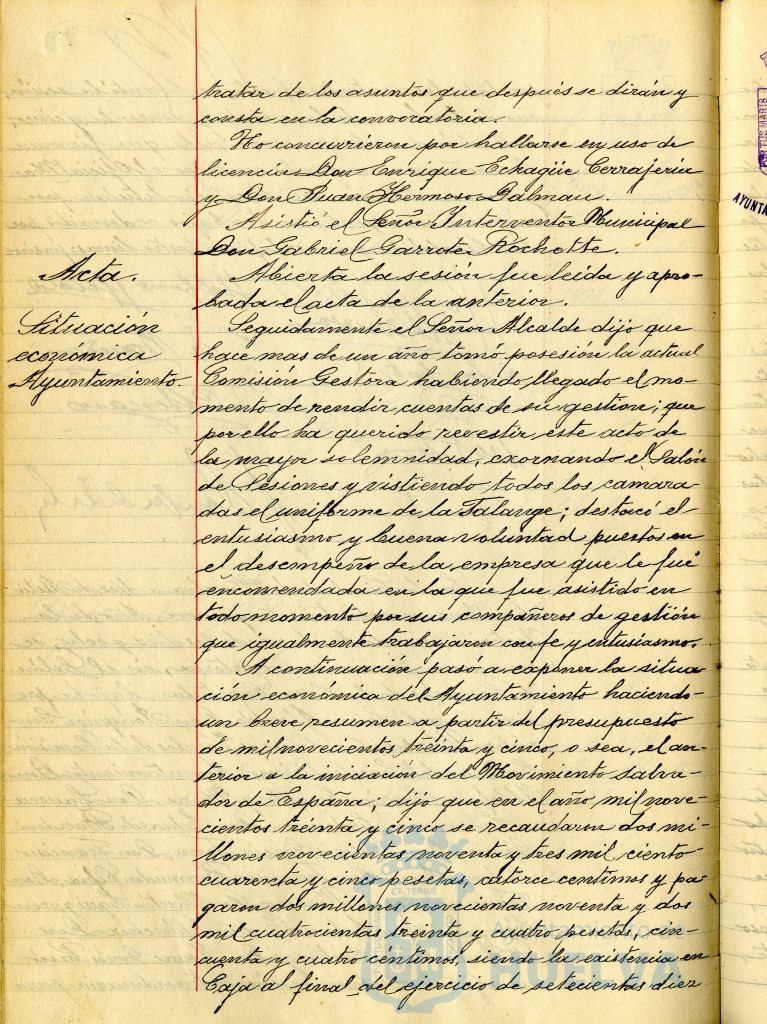 tratar de los asuntos que después se dirán y
consta en la convocatoria.
No concurrieron por hallarse en uso de
licencia Don Enrique Echagüe Cerrajería
y Don Juan Hermoso Dalmau.
Asistió el Señor Interventor Municipal
Don Gabriel Garrote Rochette.
Acta.
Abierta la sesión fue leida y apro-
bada el acta de la anterior.
Situación
económica
Ayuntamiento.
Seguidamente el Señor Alcalde dijo que
hace mas de un año tomó posesión la actual
Comisión Gestora habiendo llegado el mo-
mento de rendir cuentas de su gestión; que
por ello ha querido revestir este acto de
la mayor solemnidad, exornando el Salón
de Sesiones y vistiendo todos los camara-
das el uniforme de la Falange; destacó el
entusiasmo y buena voluntad puestos en
el desempeño de la empresa que le fué
encomendada en la que fue asistido en
todo momento por sus compañeros de gestión
que igualmente trabajaron con fe y entusiasmo.
A continuación pasó a exponer la situa
ción económica del Ayuntamiento haciendo
un breve resumen a partir del presupuesto
de mil novecientos treinta y cinco, o sea, el an-
terior a la iniciación del Movimiento salva-
dor de España; dijo que en el año mil nove-
cientos treinta y cinco se recaudaron dos mi-
llones novecientas noventa y tres mil ciento
cuarenta y cinco pesetas, catorce centimos y pa-
garon dos millones novecientas noventa y dos
mil cuatrocientas treinta y cuatro pesetas, cin-
cuenta y cuatro céntimos, siendo la existencia en
Caja al final del ejercicio de setecientas diez
HUELVA
PORTUS MARIS
AYUNTA